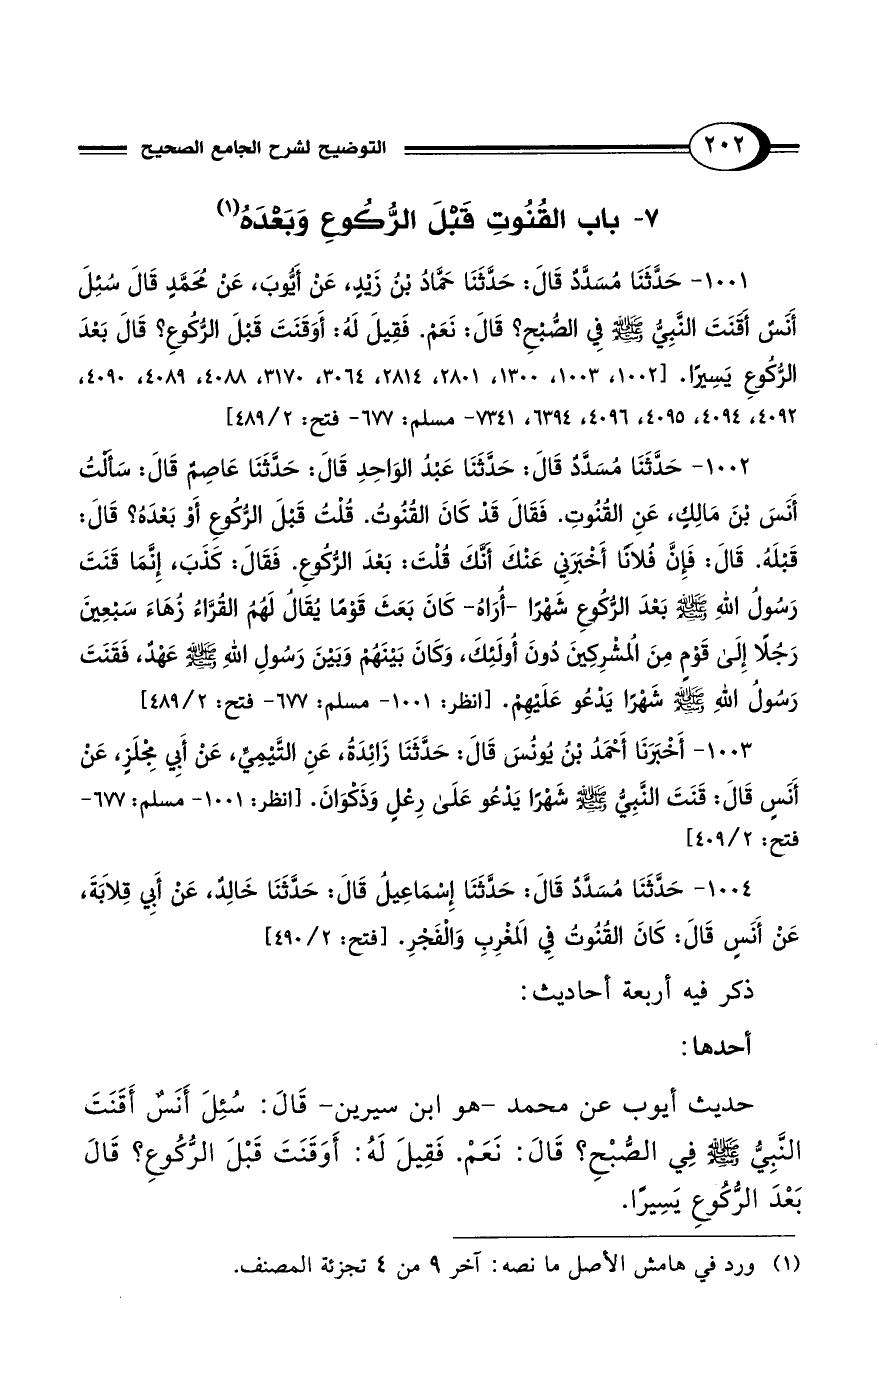 ٢٠٢ التوضيح لشرح الجامع الصحيح
٧- باب القُنُوتِ قَبْلَ الرُّكُوعِ وَبَعْدَهُ(١)
١٠٠١- حَدَّثَنَا مُسَدَّدٌ قَالَ: حَدَّثَنَا حَمَّادُ بْنُ زَيْدٍ، عَنْ أَيُّوبَ، عَنْ مُحَمَّدٍ قَالَ سُئِلَ
أَنَسٌ أَقَنَتَ النَّبِيُّ ﷺ فِي الصُّبْحِ؟ قَالَ: نَعَمْ. فَقِيلَ لَهُ: أَوَقَنَتَ قَبْلَ الرُّكُوعِ؟ قَالَ بَعْدَ
الرُّكُوعِ يَسِيرًا. [١٠٠٢، ١٠٠٣، ١٣٠٠، ٢٨٠١، ٢٨١٤، ٣٠٦٤، ٣١٧٠، ٤٠٨٨، ٤٠٨٩، ٤٠٩٠،
٤٠٩٢، ٤٠٩٤، ٤٠٩٥، ٤٠٩٦، ٦٣٩٤، ٧٣٤١- مسلم: ٦٧٧- فتح: ٤٨٩/٢]
١٠٠٢- حَدَّثَنَا مُسَدَّدٌ قَالَ: حَدَّثَنَا عَبْدُ الوَاحِدِ قَالَ: حَدَّثَنَا عَاصِمٌ قَالَ: سَأَلْتُ
أَنَسَ بْنَ مَالِكٍ، عَنِ القُنُوتِ. فَقَالَ قَدْ كَانَ القُنُوتُ. قُلْتُ قَبْلَ الرُّكُوعِ أَوْ بَعْدَهُ؟ قَالَ:
قَبْلَهُ. قَالَ: فَإِنَّ فُلَانًا أَخْبَرَنِي عَنْكَ أَنَّكَ قُلْتَ: بَعْدَ الرُّكُوعِ. فَقَالَ: كَذَبَ، إِنَّمَا قَنَتَ
رَسُولُ اللهِ ﷺ بَعْدَ الرُّكُوعِ شَهْرًا -أُرَاهُ- كَانَ بَعَثَ قَوْمًا يُقَالُ لَهُمُ القُرَّاءُ زُهَاءَ سَبْعِينَ
رَجُلًا إِلَىٰ قَوْمٍ مِنَ الُمشْرِكِينَ دُونَ أُولَئِكَ، وَكَانَ بَيْنَهُمْ وَبَيْنَ رَسُولِ اللهِ ﷺ عَهْدٌ، فَقَنَتَ
رَسُولُ اللهِ ﷺ شَهْرًا يَدْعُو عَلَيْهِمْ. [انظر: ١٠٠١- مسلم: ٦٧٧- فتح: ٤٨٩/٢]
١٠٠٣- أَخْبَرَنَا أَحْمَدُ بْنُ يُونُسَ قَالَ: حَدَّثَنَا زَائِدَةُ، عَنِ التَّيْمِيِّ، عَنْ أَبِي مِجْلَزٍ، عَنْ
أَنَسٍ قَالَ: قَنَتَ النَّبِيُّ ﷺ شَهْرًا يَدْعُو عَلَىٰ رِعْلٍ وَذَكْوَانَ. [انظر: ١٠٠١- مسلم: ٦٧٧-
فتح: ٤٠٩/٢]
١٠٠٤- حَدَّثَنَا مُسَدَّدٌ قَالَ: حَدَّثَنَا إِسْمَاعِيلُ قَالَ: حَدَّثَنَا خَالِدٌ، عَنْ أَبِي قِلَابَةَ،
عَنْ أَنَسٍ قَالَ: كَانَ القُنُوتُ فِي الَمغْرِبِ وَالْفَجْرِ. [فتح: ٤٩٠/٢]
ذكر فيه أربعة أحاديث:
أحدها:
حديث أيوب عن محمد -هو ابن سيرين- قَالَ: سُئِلَ أَنَسٌ أَقَنَتَ
النَّبِيُّ ﷺ فِي الصُّبْحِ؟ قَالَ: نَعَمْ. فَقِيلَ لَهُ: أَوَقَنَتَ قَبْلَ الرُّكُوعِ؟ قَالَ
بَعْدَ الرُّكُوعِ يَسِيرًا.
(١) ورد في هامش الأصل ما نصه: آخر ٩ من ٤ تجزئة المصنف.